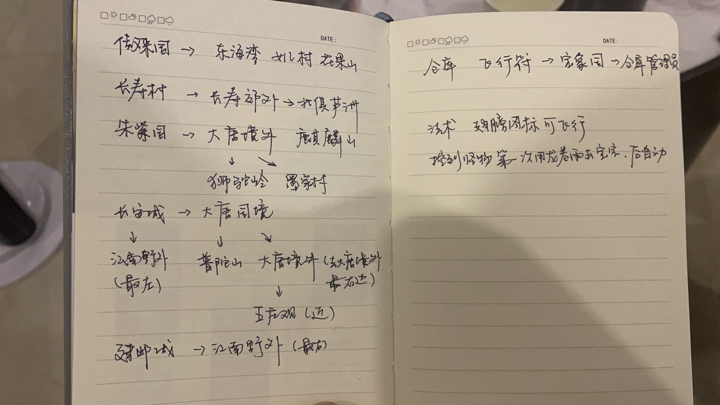 DATE:
傲来国 → 东海湾 女儿村 花果山
长寿村 → 长寿郊外 → 北俱芦洲
朱紫国 → 大唐境外 麒麟山
↓ ↘
狮驼岭 墨家村
长安城 → 大唐国境
↓ ↓ ↘
江南野外 普陀山 大唐境外 (去大唐境外
(最左) 最右边)
↓
五庄观 (近)
建邺城 → 江南野外 (最右)
DATE:
仓库 飞行符 → 宝象国 → 仓库管理员
法术 图标可飞行
怪物第一次用龙卷雨击 后自动